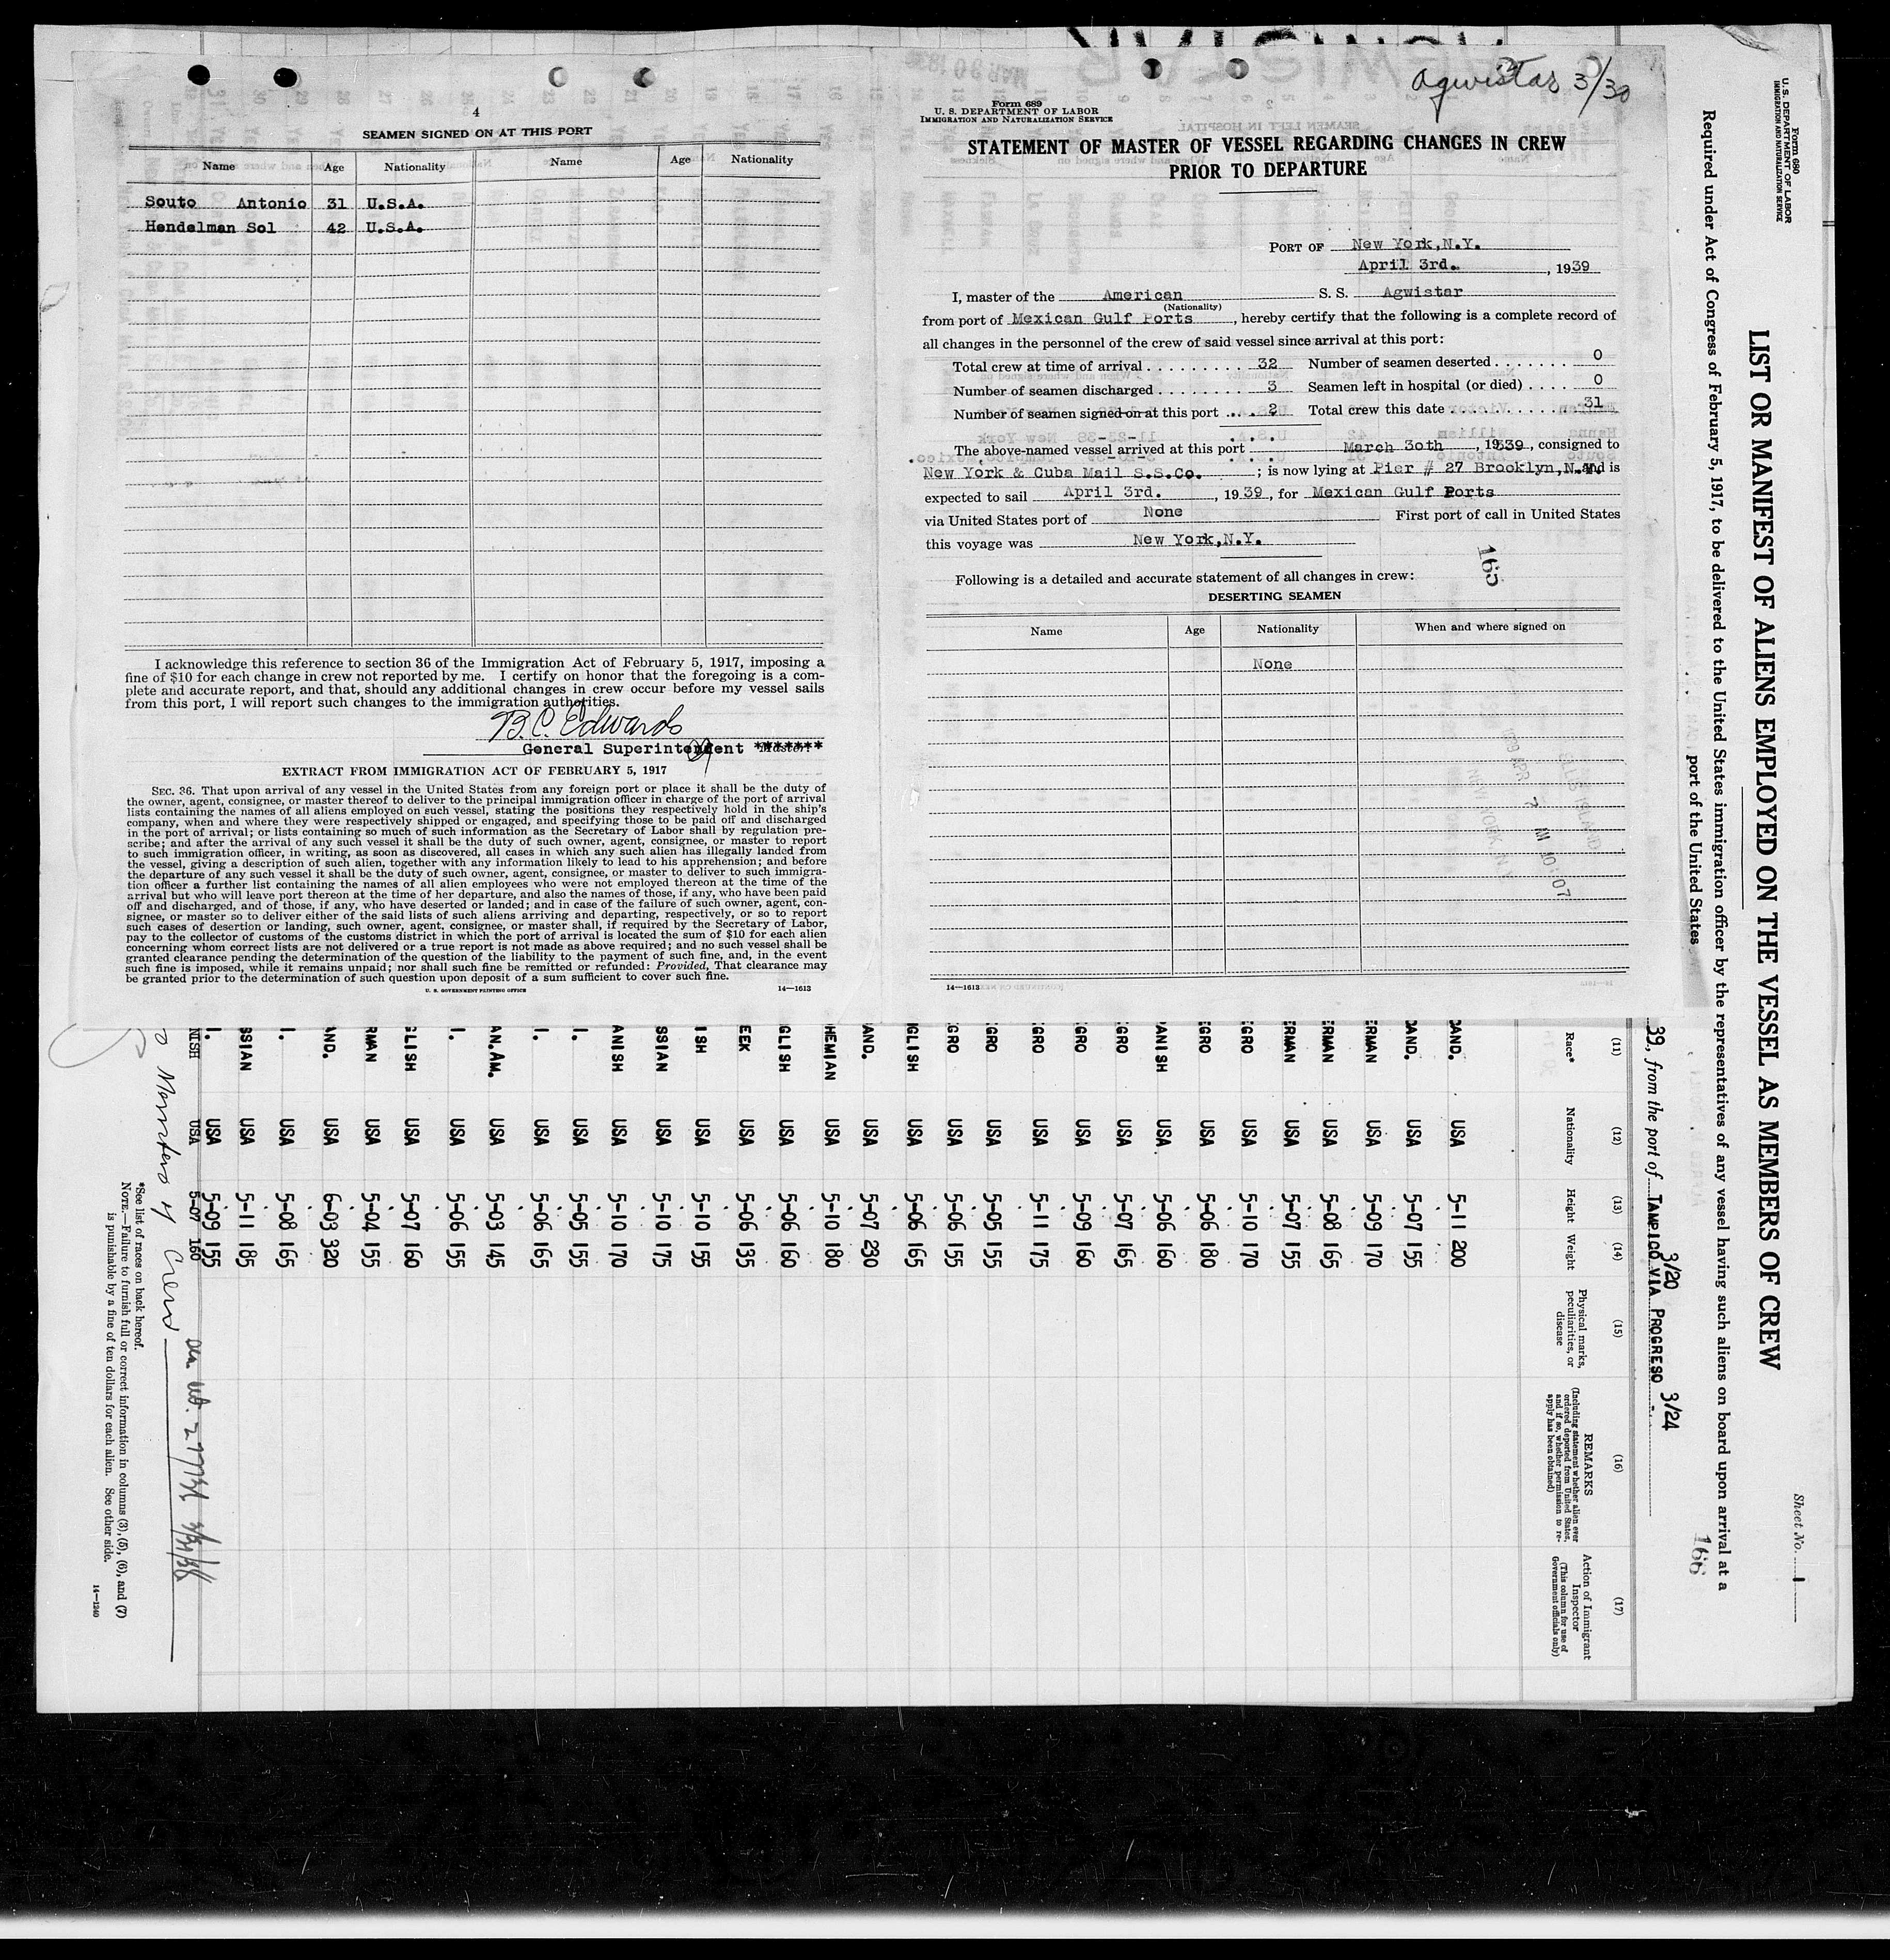 Agwistar 3/30
4
SEAMEN SIGNED ON AT THIS PORT
Name Age Nationality Name Age Nationality
Souto Antonio 31 U.S.A.
Hendelman Sol 42 U.S.A.
I acknowledge this reference to section 36 of the Immigration Act of February 5, 1917, imposing a
fine of $10 for each change in crew not reported by me. I certify on honor that the foregoing is a com-
plete and accurate report, and that, should any additional changes in crew occur before my vessel sails
from this port, I will report such changes to the immigration authorities.
B.C. Edwards
General Superintendent *******
EXTRACT FROM IMMIGRATION ACT OF FEBRUARY 5, 1917
SEC. 36. That upon arrival of any vessel in the United States from any foreign port or place it shall be the duty of
the owner, agent, consignee, or master thereof to deliver to the principal immigration officer in charge of the port of arrival
lists containing the names of all aliens employed on such vessel, stating the positions they respectively hold in the ship's
company, when and where they were respectively shipped or engaged, and specifying those to be paid off and discharged
in the port of arrival; or lists containing so much of such information as the Secretary of Labor shall by regulation pre-
scribe; and after the arrival of any such vessel it shall be the duty of such owner, agent, consignee, or master to report
to such immigration officer, in writing, as soon as discovered, all cases in which any such alien has illegally landed from
the vessel, giving a description of such alien, together with any information likely to lead to his apprehension; and before
the departure of any such vessel it shall be the duty of such owner, agent, consignee, or master to deliver to such immigra-
tion officer a further list containing the names of all alien employees who were not employed thereon at the time of the
arrival but who will leave port thereon at the time of her departure, and also the names of those, if any, who have been paid
off and discharged, and of those, if any, who have deserted or landed; and in case of the failure of such owner, agent, con-
signee, or master so to deliver either of the said lists of such aliens arriving and departing, respectively, or so to report
such cases of desertion or landing, such owner, agent, consignee, or master shall, if required by the Secretary of Labor,
pay to the collector of customs of the customs district in which the port of arrival is located the sum of $10 for each alien
concerning whom correct lists are not delivered or a true report is not made as above required; and no such vessel shall be
granted clearance pending the determination of the question of the liability to the payment of such fine, and, in the event
such fine is imposed, while it remains unpaid; nor shall such fine be remitted or refunded: Provided, That clearance may
be granted prior to the determination of such question upon deposit of a sum sufficient to cover such fine.
U. S. GOVERNMENT PRINTING OFFICE 14—1613
Form 689
U. S. DEPARTMENT OF LABOR
IMMIGRATION AND NATURALIZATION SERVICE
STATEMENT OF MASTER OF VESSEL REGARDING CHANGES IN CREW
PRIOR TO DEPARTURE
PORT OF New York,N.Y.
April 3rd. , 1939
I, master of the American S. S. Agwistar
(Nationality)
from port of Mexican Gulf Ports , hereby certify that the following is a complete record of
all changes in the personnel of the crew of said vessel since arrival at this port:
Total crew at time of arrival . . . . . . . . . . 32 Number of seamen deserted . . . . . . . 0
Number of seamen discharged . . . . . . . . . 3 Seamen left in hospital (or died) . . . . 0
Number of seamen signed on at this port . . . . 2 Total crew this date . . . . . . . . . . . 31
The above-named vessel arrived at this port March 30th , 1939 , consigned to
New York & Cuba Mail S.S.Co. ; is now lying at Pier # 27 Brooklyn,N.Y. and is
expected to sail April 3rd. , 1939 , for Mexican Gulf Ports
via United States port of None First port of call in United States
this voyage was New York,N.Y.
165
Following is a detailed and accurate statement of all changes in crew:
DESERTING SEAMEN
Name Age Nationality When and where signed on
None
ELLIS ISLAND
1939 APR 7 AM 10:07
NEW YORK N.Y.
14—1613
Form 680
U.S. DEPARTMENT OF LABOR
IMMIGRATION AND NATURALIZATION SERVICE
Sheet No. 1
LIST OR MANIFEST OF ALIENS EMPLOYED ON THE VESSEL AS MEMBERS OF CREW
Required under Act of Congress of February 5, 1917, to be delivered to the United States immigration officer by the representatives of any vessel having such aliens on board upon arrival at a
port of the United States
166
39, from the port of TAMPICO 3/20 VIA PROGRESO 3/24
(11) (12) (13) (14) (15) (16) (17)
Race* Nationality Height Weight Physical marks, peculiarities, or disease REMARKS (Including statement whether alien ever ordered deported from United States, and if so, whether permission to re-apply has been obtained) Action of Immigrant Inspector (This column for use of Government officials only)
AND. USA 5-11 200
AND. USA 5-07 155
ERMAN USA 5-09 170
ERMAN USA 5-08 165
ERMAN USA 5-07 155
GRO USA 5-10 170
EGRO USA 5-06 180
ANISH USA 5-06 160
GRO USA 5-07 165
GRO USA 5-09 160
GRO USA 5-11 175
EGRO USA 5-05 155
GRO USA 5-06 155
GLISH USA 5-06 165
AND. USA 5-07 230
HEMIAN USA 5-10 180
GLISH USA 5-06 160
EEK USA 5-06 135
ISH USA 5-10 155
SSIAN USA 5-10 175
ANISH USA 5-10 170
I. USA 5-05 155
I. USA 5-06 165
AN.AM. USA 5-03 145
I. USA 5-06 155
GLISH USA 5-07 160
RMAN USA 5-04 155
AND. USA 6-03 320
I. USA 5-08 165
SSIAN USA 5-11 185
I. USA 5-09 155
NISH USA 5-07 160
Members of Crew
*See list of races on back hereof.
NOTE.—Failure to furnish full or correct information in columns (3), (5), (6), and (7)
is punishable by a fine of ten dollars for each alien. See other side.
14—1240